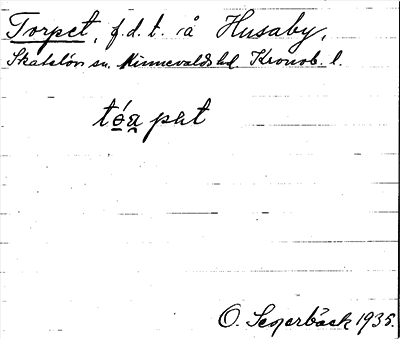 Torpet, f.d.t. i å Husaby,
Skatelöv sn. Kinnevalds hd Kronob. l.
tóa pat
O. Segerbäck 1935.